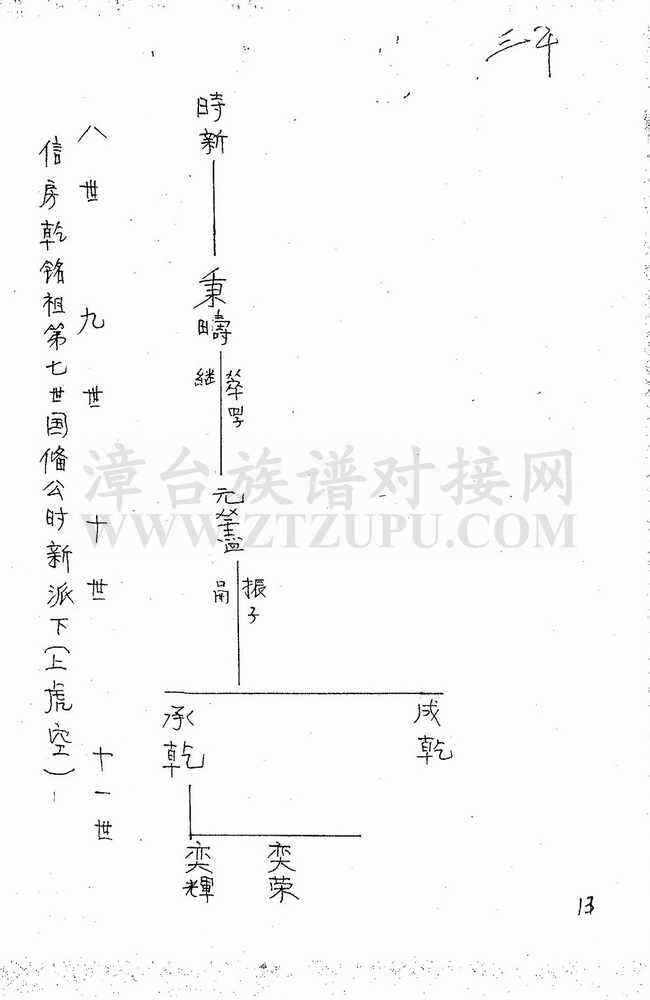 三平
信房乾銘祖第七世国俻公时新派下(上虎空)
八世 九世 十世 十一世
時新
秉疇
継
元
振子
承乾
成乾
奕輝
奕荣
13
漳台族谱对接网
WWW.ZTZUPU.COM